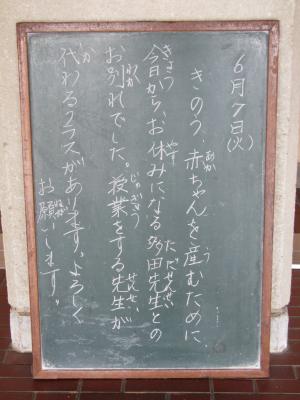 6月7日(火)
きのう、赤ちゃんを産むために、
今日から、お休みになる多田先生との
お別れでした。授業をする先生が
代わるクラスがあります。よろしく
お願いします。